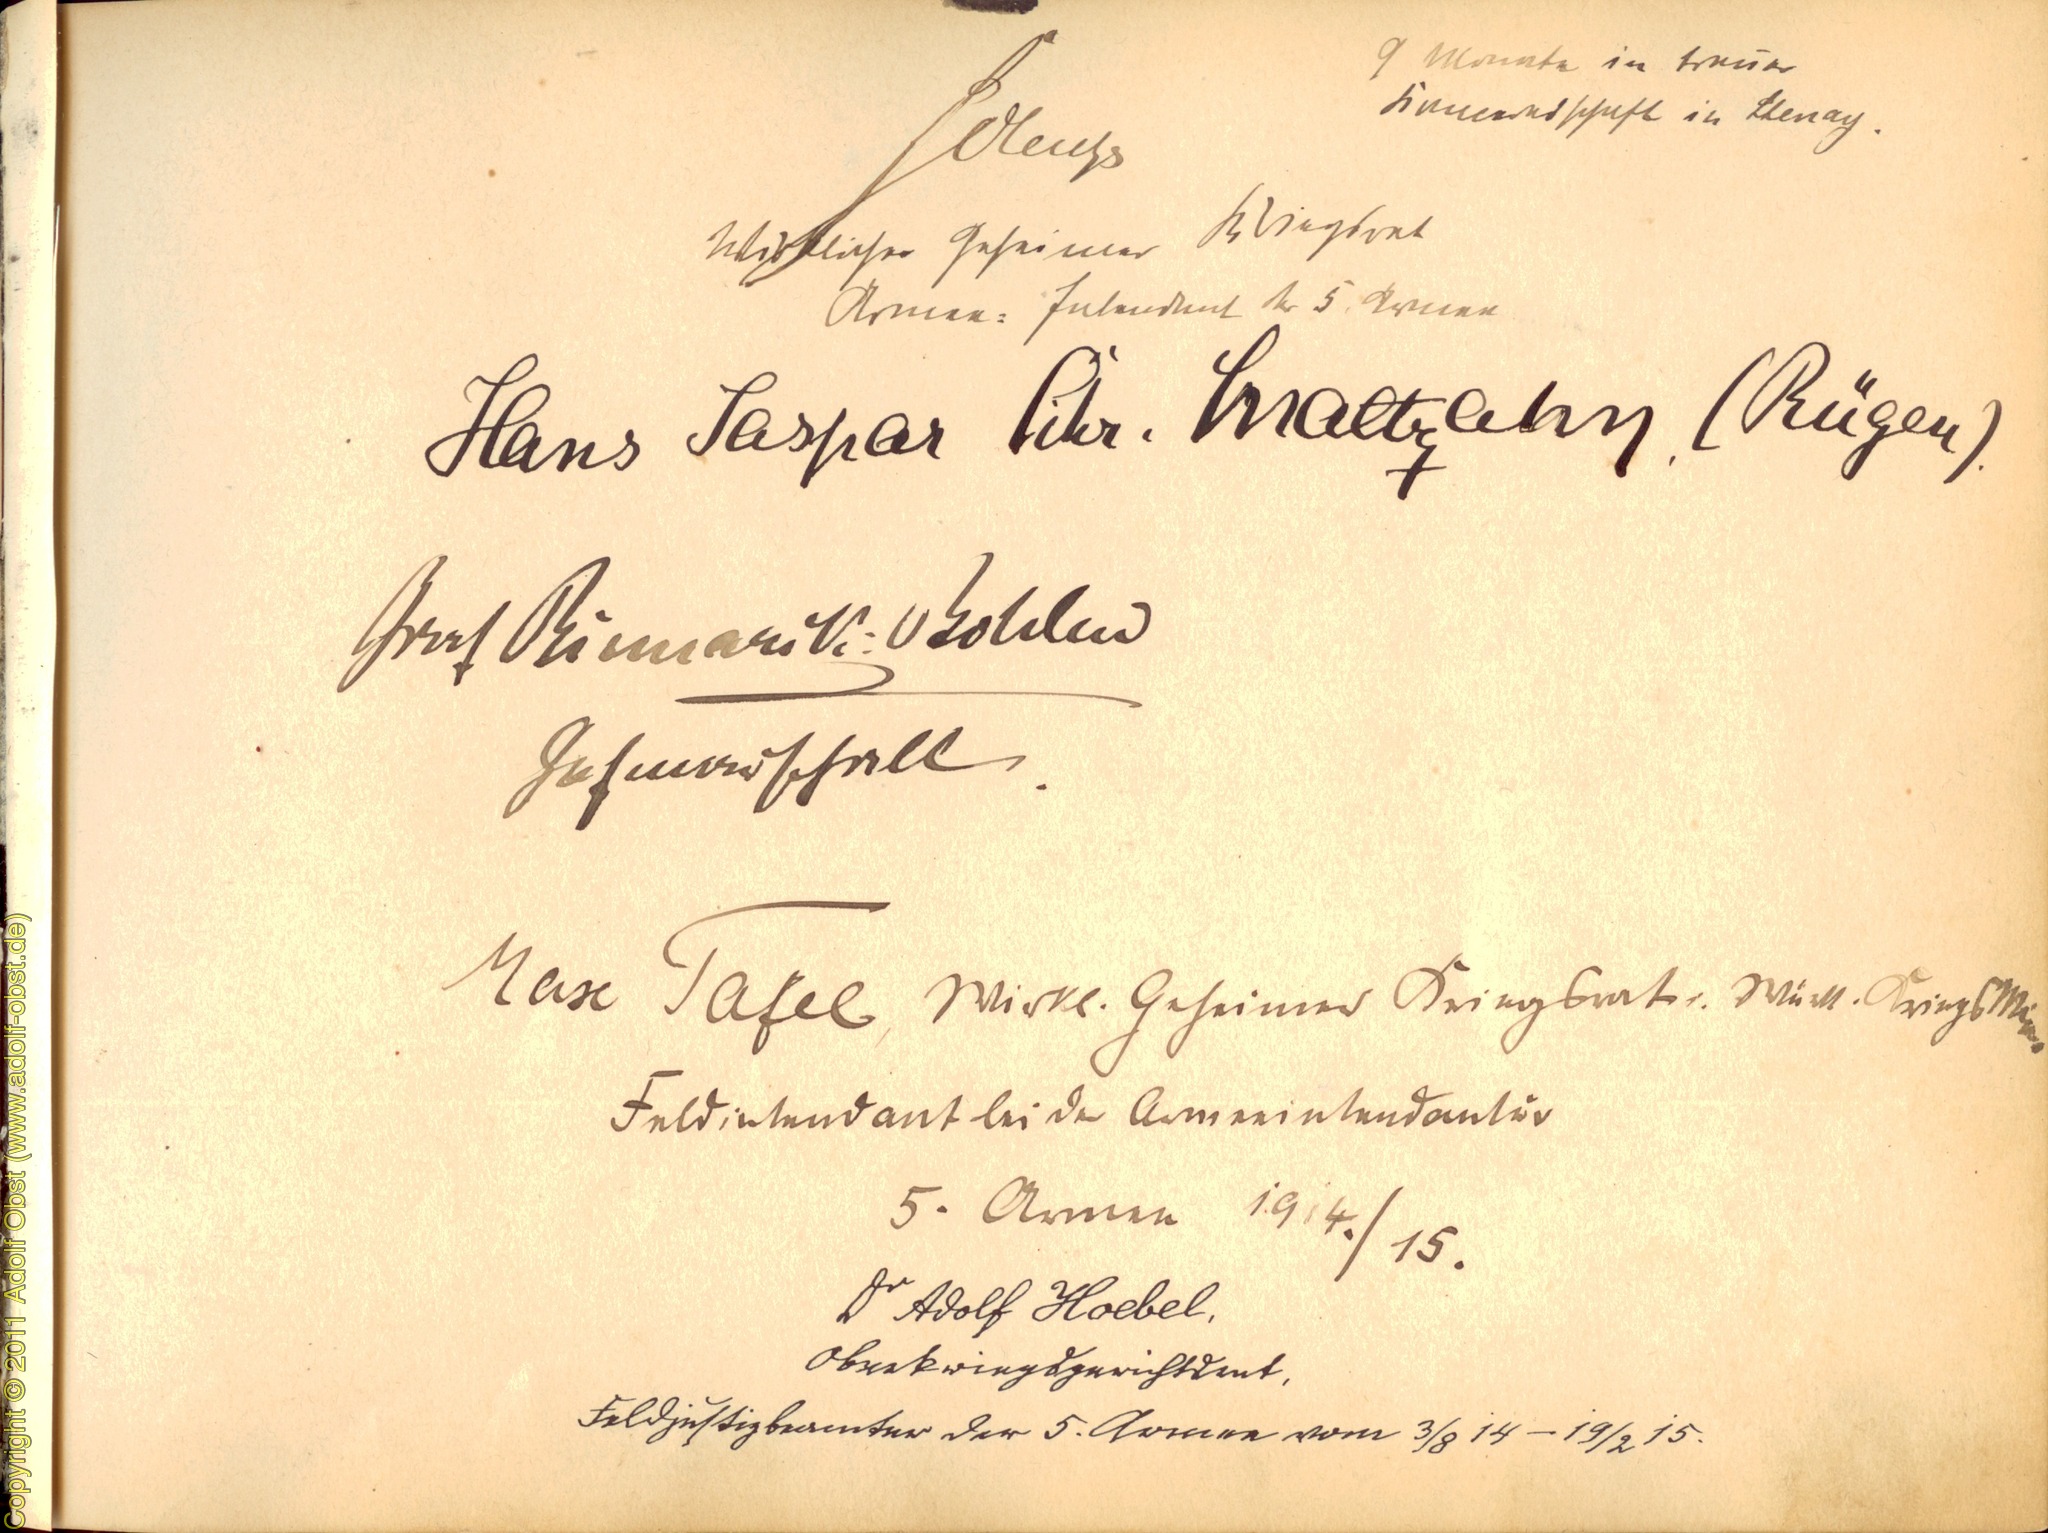 9 Monate in treuer
Kameradschaft in Stenay.
Wirklicher Geheimer Kriegsrat
Armee-Intendant der 5. Armee
Hans Caspar Frhr. Maltzahn. (Rügen).
Graf Bismarck-Bohlen
Hofmarschall.
Max Tafel, Wirkl. Geheimer Kriegsrat i. Württ. KriegsMin
Feldintendant bei der Armeeintendantur
5. Armee 1914./15.
Dr Adolf Hoebel,
Oberkriegsgerichtsrat,
Feldjustizbeamter der 5. Armee vom 3/8 14 – 19/2 15.
Copyright © 2011 Adolf Obst (www.adolf-obst.de)